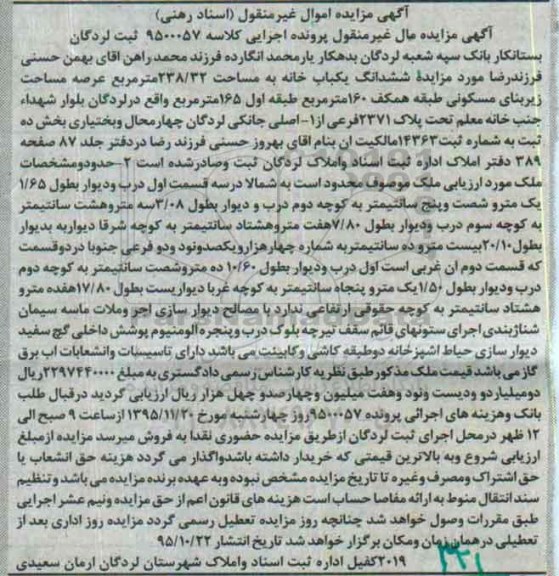 آگهی مزایده اموال غیرمنقول (اسناد رهنی)
آگهی مزایده مال غیرمنقول پرونده اجرایی کلاسه ۹۵۰۰۰۵۷ ثبت لردگان
بستانکار بانک سپه شعبه لردگان بدهکار یارمحمد انگارده فرزند محمد راهن اقای بهمن حسنی
فرزندرضا مورد مزایدۀ ششدانگ یکباب خانه به مساحت ۲۳۸/۳۲مترمربع عرصه مساحت
زیربنای مسکونی طبقه همکف ۱۶۰مترمربع طبقه اول ۱۶۵مترمربع واقع درلردگان بلوار شهداء
جنب خانه معلم تحت پلاک ۲۳۷۱فرعی از۱-اصلی جانکی لردگان چهارمحال وبختیاری بخش ده
ثبت به شماره ثبت۱۴۳۶۳مالکیت ان بنام اقای بهروز حسنی فرزند رضا دردفتر جلد ۸۷ صفحه
۳۸۹ دفتر املاک اداره ثبت اسناد واملاک لردگان ثبت وصادرشده است ۲-حدودومشخصات
ملک مورد ارزیابی ملک موصوف محدود است به شمالا درسه قسمت اول درب ودیوار بطول ۱/۶۵
یک مترو شصت وپنج سانتیمتر به کوچه دوم درب و دیوار بطول ۳/۰۸سه متروهشت سانتیمتر
به کوچه سوم درب ودیوار بطول ۷/۸۰هفت متروهشتاد سانتیمتر به کوچه شرقا دیواربه بدیوار
بطول۲۰/۱۰بیست مترو ده سانتیمتربه شماره چهارهزارویکصدونود ودو فرعی جنوبا دردوقسمت
که قسمت دوم ان غربی است اول درب ودیوار بطول ۱۰/۶۰ ده متروشصت سانتیمتر به کوچه دوم
درب ودیوار بطول ۱/۵۰یک مترو پنجاه سانتیمتر به کوچه غربا دیواریست بطول ۱۷/۸۰هفده مترو
هشتاد سانتیمتر به کوچه حقوقی ارتفاعی ندارد با مصالح دیوار سازی اجر وملات ماسه سیمان
شناژبندی اجرای ستونهای قائم سقف تیرچه بلوک درب وپنجره الومنیوم پوشش داخلی گچ سفید
دیوار سازی حیاط اشپزخانه دوطبقه کاشی وکابینت می باشد دارای تاسیسات وانشعابات اب برق
گاز می باشد قیمت ملک مذکور طبق نظریه کارشناس رسمی دادگستری به مبلغ ۲۲۹۷۴۴۰۰۰۰ریال
دومیلیاردو ودیست ونود وهفت میلیون وچهارصدو چهل هزار ریال ارزیابی گردید در قبال طلب
بانک وهزینه های اجرائی پرونده ۹۵۰۰۰۵۷روز چهارشنبه مورخ ۱۳۹۵/۱۱/۲۰ ازساعت ۹ صبح الی
۱۲ ظهر درمحل اجرای ثبت لردگان ازطریق مزایده حضوری نقدا به فروش میرسد مزایده ازمبلغ
ارزیابی شروع وبه بالاترین قیمتی که خریدار داشته باشدواگذار می گردد هزینه حق انشعاب یا
حق اشتراک ومصرف وغیره تا تاریخ مزایده مشخص نبوده وبه عهده برنده مزایده می باشد وتنظیم
سند انتقال منوط به ارائه مفاصا حساب است هزینه های قانون اعم از حق مزایده ونیم عشر اجرایی
طبق مقررات وصول خواهد شد چنانچه روز مزایده تعطیل رسمی گردد مزایده روز اداری بعد از
تعطیلی درهمان زمان ومکان برگزار خواهد شد تاریخ انتشار ۹۵/۱۰/۲۲
۲۰۱۹کفیل اداره ثبت اسناد واملاک شهرستان لردگان ارمان سعیدی